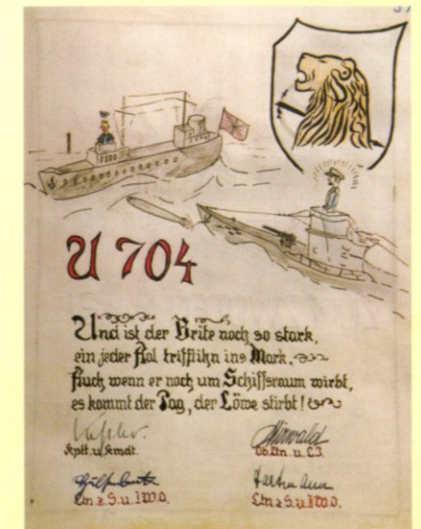 U 704
Und ist der Brite noch so stark,
ein jeder Aal trifft ihn ins Mark.
Auch wenn er noch um Schiffsraum wirbt,
es kommt der Tag, der Löwe stirbt!
Kptlt. u. Kmdt.
Ob.Ltn. u. L.I.
Ltn. z. S. u. I W.O.
Ltn. z. S. u. II W.O.